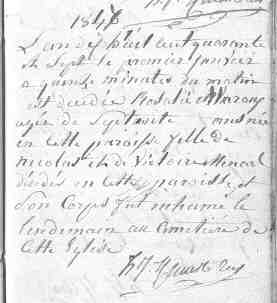 1847
L'an dix huit cent quarante
et sept le premier janvier
a quinze minutes du matin
est décédée Rosalie
agée de Sept
en cette paroisse fille de
nicolas et de Victoire
décédés en cette paroisse et
Son Corps fut inhumé le
lendemain au Cimetière de
Cette Eglise